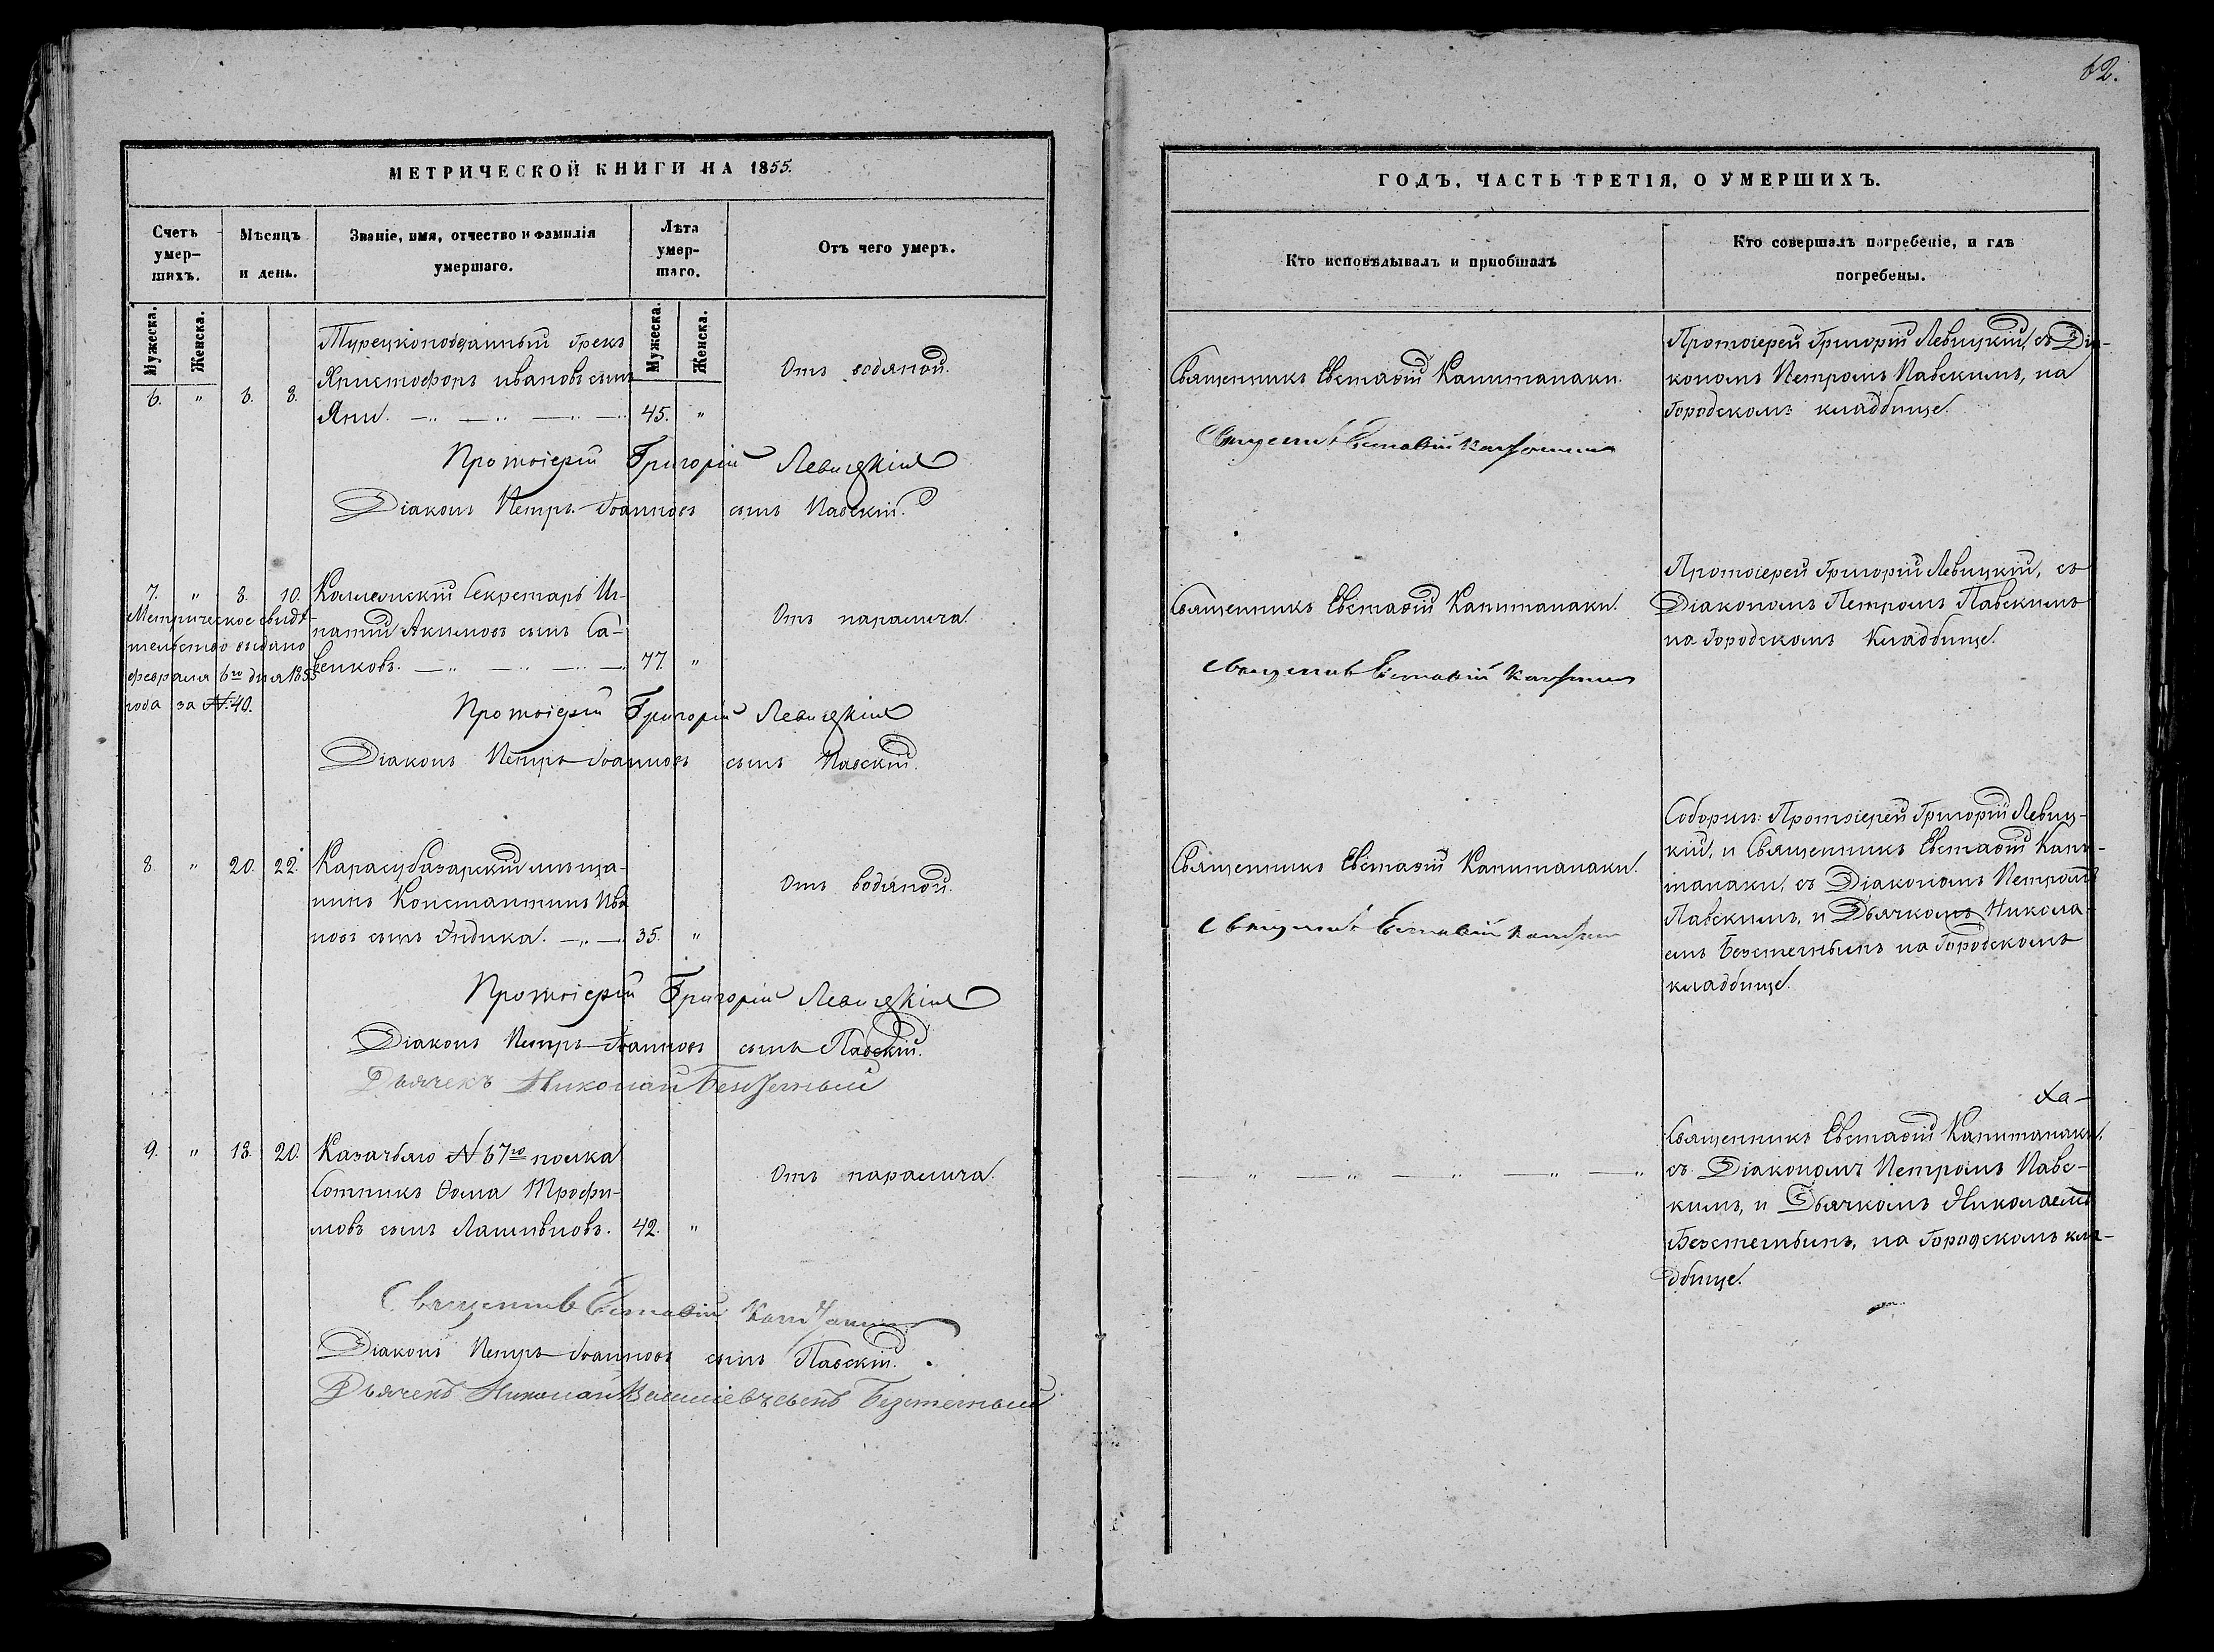 62.
МЕТРИЧЕСКОЙ КНИГИ НА 1855.
Счетъ умер-шихъ.
Мѣсяцъ и день.
Званіе, имя, отчество и фамилія умершаго.
Лѣта умер-шаго.
Отъ чего умеръ.
Мужеска.
Женска.
Мужеска.
Женска.
Турецкоподданный Грекъ
Христофоръ Ивановъ сынъ
6. " 6. 8. Яни. 45. "
Отъ водяной.
Протоіерей Григорій Левицкій
Діаконъ Петръ Іоанновъ сынъ Павскій.
7. " 8. 10. Коллежскій Секретарь Иг-
натій Акимовъ сынъ Са-
венковъ. 77. "
Отъ паралича.
Метрическое свидѣ-
тельство выдано
февраля 6го дня 1855
года за №. 40.
Протоіерей Григорій Левицкій
Діаконъ Петръ Іоанновъ сынъ Павскій.
8. " 20. 22. Карасубазарскій мѣща-
нинъ Константинъ Ива
новъ сынъ Индика. 35. "
Отъ водяной.
Протоіерей Григорій Левицкій
Діаконъ Петръ Іоанновъ сынъ Павскій.
Дьячекъ Николай Безстетный
9. " 18. 20. Казачьяго № 67го полка
Сотникъ Ѳома Трофи-
мовъ сынъ 42. "
Отъ паралича.
Священникъ Евстафій Капитанаки
Діаконъ Петръ Іоанновъ сынъ Павскій.
Дьячекъ Николай сынъ
ГОДЪ, ЧАСТЬ ТРЕТІЯ, О УМЕРШИХЪ.
Кто исповѣдывалъ и пріобщалъ
Кто совершалъ погребеніе, и гдѣ погребены.
Священникъ Евстафій Капитанаки.
Священникъ Евстафій Капитанаки
Протоіерей Григорій Левицкій, съ Діа-
кономъ Петромъ Павскимъ, на
Городскомъ кладбищѣ.
Священникъ Евстафій Капитанаки.
Священникъ Евстафій Капитанаки
Протоіерей Григорій Левицкій, съ
Діакономъ Петромъ Павскимъ
на Городскомъ Кладбищѣ.
Священникъ Евстафій Капитанаки.
Священникъ Евстафій Капитанаки
Соборнѣ: Протоіерей Григорій Левиц-
кій, и Священникъ Евстафій Капи-
танаки, съ Діакономъ Петромъ
Павскимъ, и Дьячкомъ Никола-
емъ на Городскомъ
кладбищѣ.
Ха-
Священникъ Евстафій Капитанаки,
съ Діакономъ Петромъ Павс-
кимъ, и Дьячкомъ Николаемъ
на Городскомъ кла-
дбищѣ.